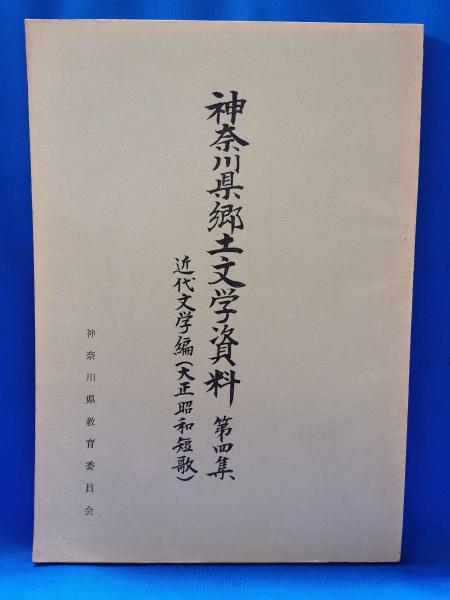 神奈川県郷土文学資料 第四集
近代文学編(大正昭和短歌)
神奈川県教育委員会